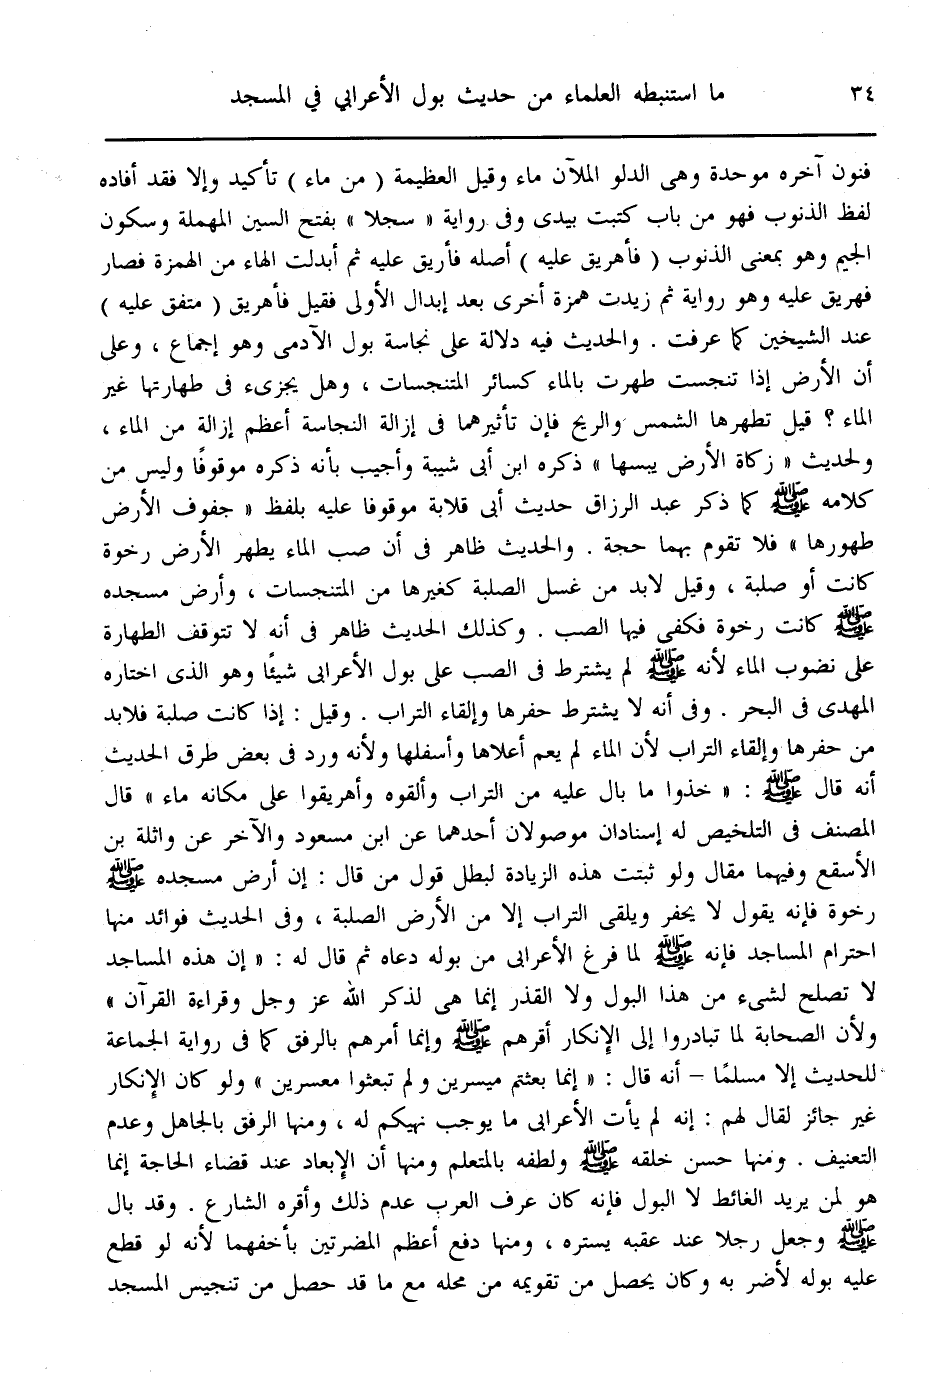 ٣٤ ما استنبطه العلماء من حديث بول الأعرابي في المسجد
فنون آخره موحدة وهى الدلو الملآن ماء وقيل العظيمة ( من ماء ) تأكيد وإلا فقد أفاده
لفظ الذنوب فهو من باب كتبت بيدى وفى رواية « سجلا » بفتح السين المهملة وسكون
الجيم وهو بمعنى الذنوب ( فأهريق عليه ) أصله فأريق عليه ثم أبدلت الهاء من الهمزة فصار
فهريق عليه وهو رواية ثم زيدت همزة أخرى بعد إبدال الأولى فقيل فأهريق ( متفق عليه )
عند الشيخين كما عرفت . والحديث فيه دلالة على نجاسة بول الآدمى وهو إجماع ، وعلى
أن الأرض إذا تنجست طهرت بالماء كسائر المتنجسات ، وهل يجزىء فى طهارتها غير
الماء ؟ قيل تطهرها الشمس والريح فإن تأثيرهما فى إزالة النجاسة أعظم إزالة من الماء ،
ولحديث « زكاة الأرض يبسها » ذكره ابن أبى شيبة وأجيب بأنه ذكره موقوفًا وليس من
كلامه ﷺ كما ذكر عبد الرزاق حديث أبى قلابة موقوفا عليه بلفظ « جفوف الأرض
طهورها » فلا تقوم بهما حجة . والحديث ظاهر فى أن صب الماء يطهر الأرض رخوة
كانت أو صلبة ، وقيل لابد من غسل الصلبة كغيرها من المتنجسات ، وأرض مسجده
ﷺ كانت رخوة فكفى فيها الصب . وكذلك الحديث ظاهر فى أنه لا تتوقف الطهارة
على نضوب الماء لأنه ﷺ لم يشترط فى الصب على بول الأعرابى شيئًا وهو الذى اختاره
المهدى فى البحر . وفى أنه لا يشترط حفرها وإلقاء التراب . وقيل : إذا كانت صلبة فلابد
من حفرها وإلقاء التراب لأن الماء لم يعم أعلاها وأسفلها ولأنه ورد فى بعض طرق الحديث
أنه قال ﷺ : « خذوا ما بال عليه من التراب وألقوه وأهريقوا على مكانه ماء » قال
المصنف فى التلخيص له إسنادان موصولان أحدهما عن ابن مسعود والآخر عن واثلة بن
الأسقع وفيهما مقال ولو ثبتت هذه الزيادة لبطل قول من قال : إن أرض مسجده ﷺ
رخوة فإنه يقول لا يحفر ويلقى التراب إلا من الأرض الصلبة ، وفى الحديث فوائد منها
احترام المساجد فإنه ﷺ لما فرغ الأعرابى من بوله دعاه ثم قال له : « إن هذه المساجد
لا تصلح لشىء من هذا البول ولا القذر إنما هى لذكر الله عز وجل وقراءة القرآن »
ولأن الصحابة لما تبادروا إلى الإنكار أقرهم ﷺ وإنما أمرهم بالرفق كما فى رواية الجماعة
للحديث إلا مسلمًا – أنه قال : « إنما بعثتم ميسرين ولم تبعثوا معسرين » ولو كان الإنكار
غير جائز لقال لهم : إنه لم يأت الأعرابى ما يوجب نهيكم له ، ومنها الرفق بالجاهل وعدم
التعنيف . ومنها حسن خلقه ﷺ ولطفه بالمتعلم ومنها أن الإبعاد عند قضاء الحاجة إنما
هو لمن يريد الغائط لا البول فإنه كان عرف العرب عدم ذلك وأقره الشارع . وقد بال
ﷺ وجعل رجلا عند عقبه يستره ، ومنها دفع أعظم المضرتين بأخفهما لأنه لو قطع
عليه بوله لأضر به وكان يحصل من تقويمه من محله مع ما قد حصل من تنجيس المسجد